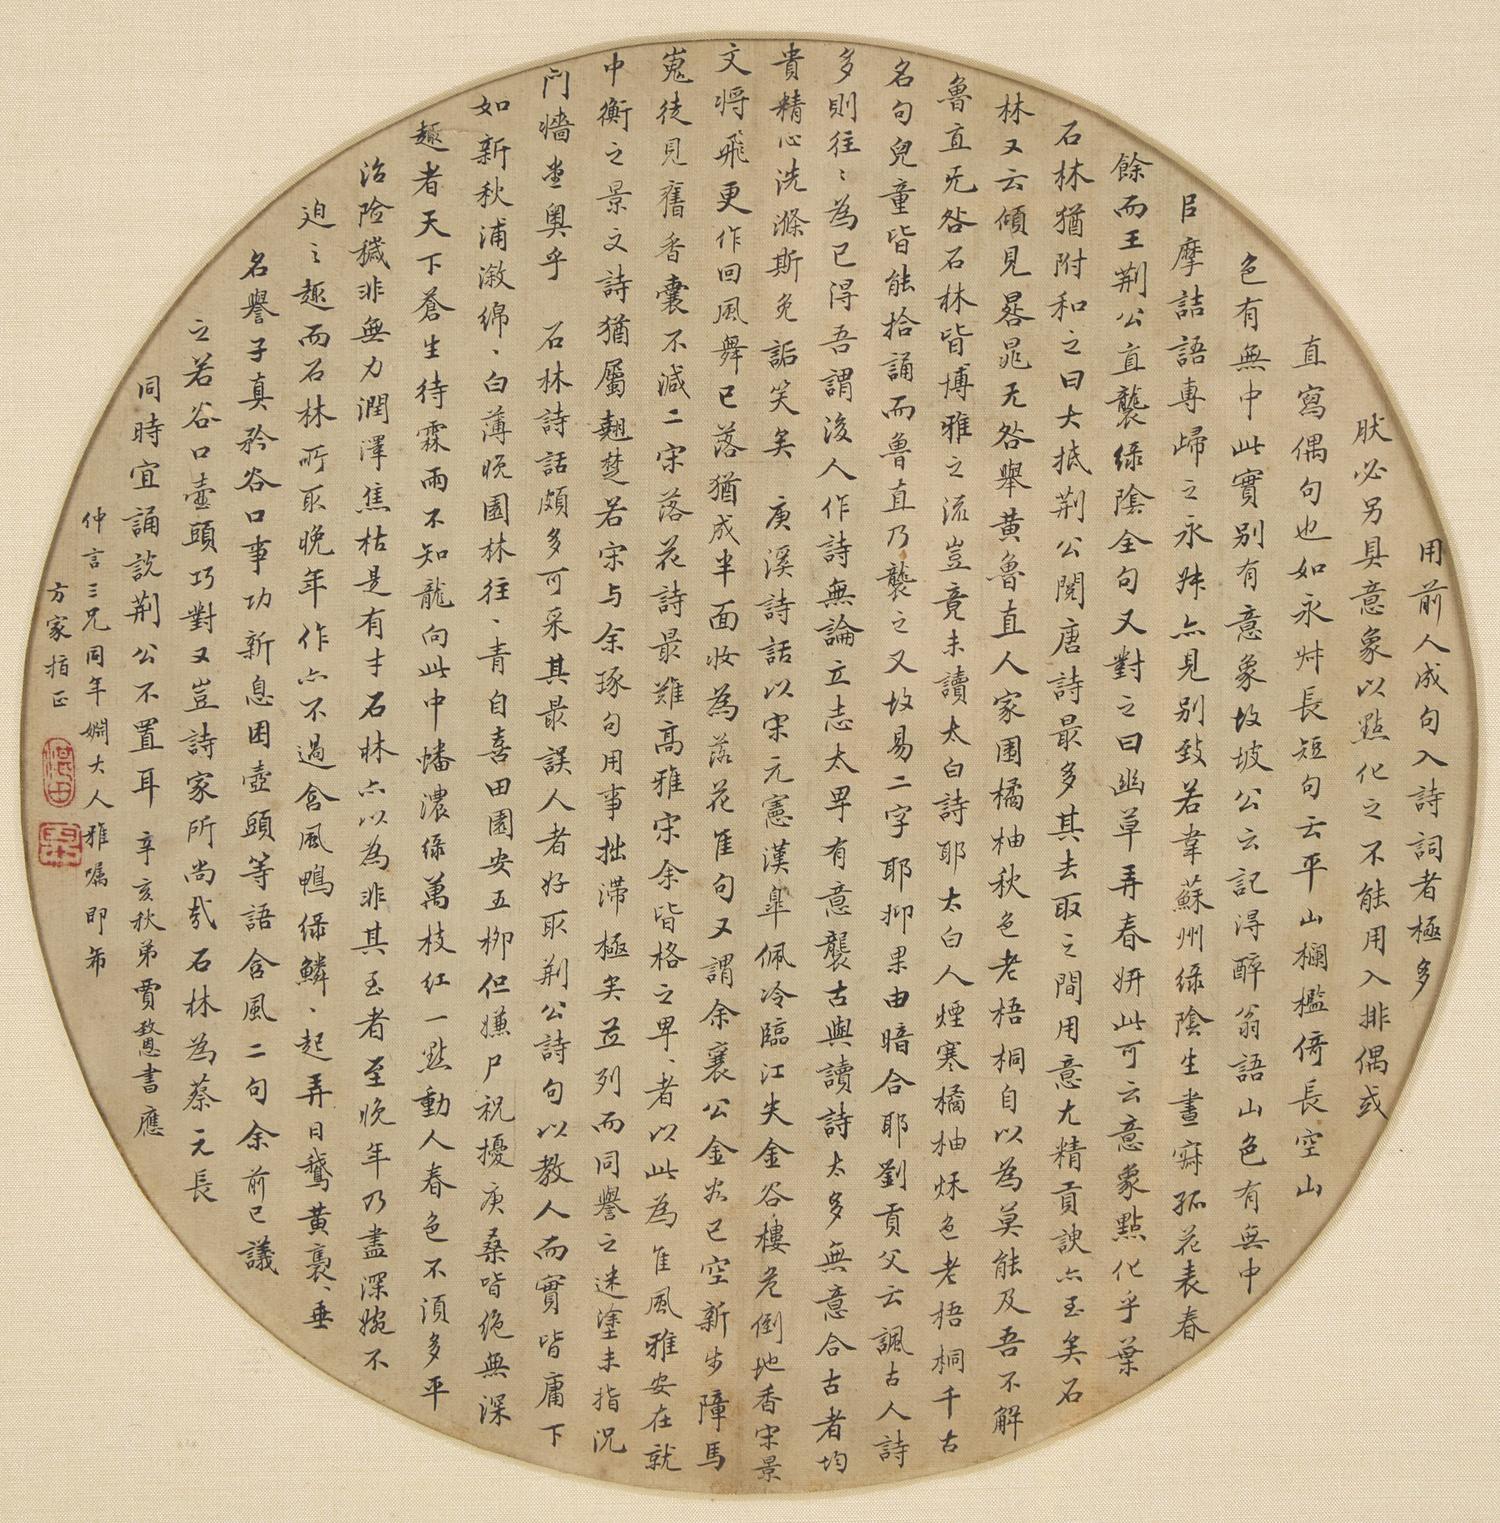 用前人成句入詩詞者極多
肰必另具意象以點化之不能用入排偶或
直寫偶句也如永叔長短句云平山欄檻倚長空山
色有無中此實别有意象故坡公云記得醉翁語山色有無中
㠯摩詰語專歸之永叔亦見别致若韋蘇州绿陰生晝寂孤花表春
餘而王荆公直襲绿陰全句又對之曰幽草弄春妍此可云意象點化乎葉
石林猶附和之曰大抵荆公閱唐詩最多其去取之間用意尤精貢諛亦至矣石
林又云傾見晁无咎舉黃魯直人家圍橘柚秋色老梧桐自以為莫能及吾不解
魯直无咎石林皆博雅之流豈竟未讀太白詩耶太白人煙寒橘柚秋色老梧桐千古
名句兒童皆能拾誦而魯直乃襲之又故易二字耶抑果由暗合耶劉貢父云諷古人詩
多則往〻為已得吾謂後人作詩無論立志太畢有意襲古與讀詩太多無意合古者均
貴精心洗滌斯免詬笑矣 庚溪詩話以宋元憲漢臯佩冷臨江失金谷樓危倒地香宋景
文将飛更作回風舞已落猶成半面妆為落花隹句又謂余襄公金谷已空新步障馬
嵬徒見舊香囊不減二宋落花詩最難高雅宋余皆格之卑、者以此為隹風雅安在就
中衡之景文詩猶屬翹楚若宋与余琢句用事拙滯極矣並列而同譽之迷塗未指况
門墻堂奥乎 石林詩話頗多可采其最誤人者好取荆公詩句以教人而實皆庸下
如新秋浦溆绵、白薄晚園林往、青自喜田園安五柳但嫌尸祝擾庚桑皆絶無深
趣者天下蒼生待霖雨不知龍向此中蟠濃绿萬枝红一點動人春色不須多平
治险穢非無力潤澤焦枯是有才石林亦以為非其至者至晚年乃盡深婉不
迫〻趣而石林所取晚年作亦不過含風鴨绿鱗、起弄日鵞黃裊、垂
名譽子真矜谷口事功新息困壺頭等語含風二句余前已議
之若谷口壺頭巧對又豈詩家所尚哉石林為蔡元長
同時宜誦說荆公不置耳 辛亥秋弟賈敦書應
仲言三兄同年嫻大人雅嘱即希
方家指正